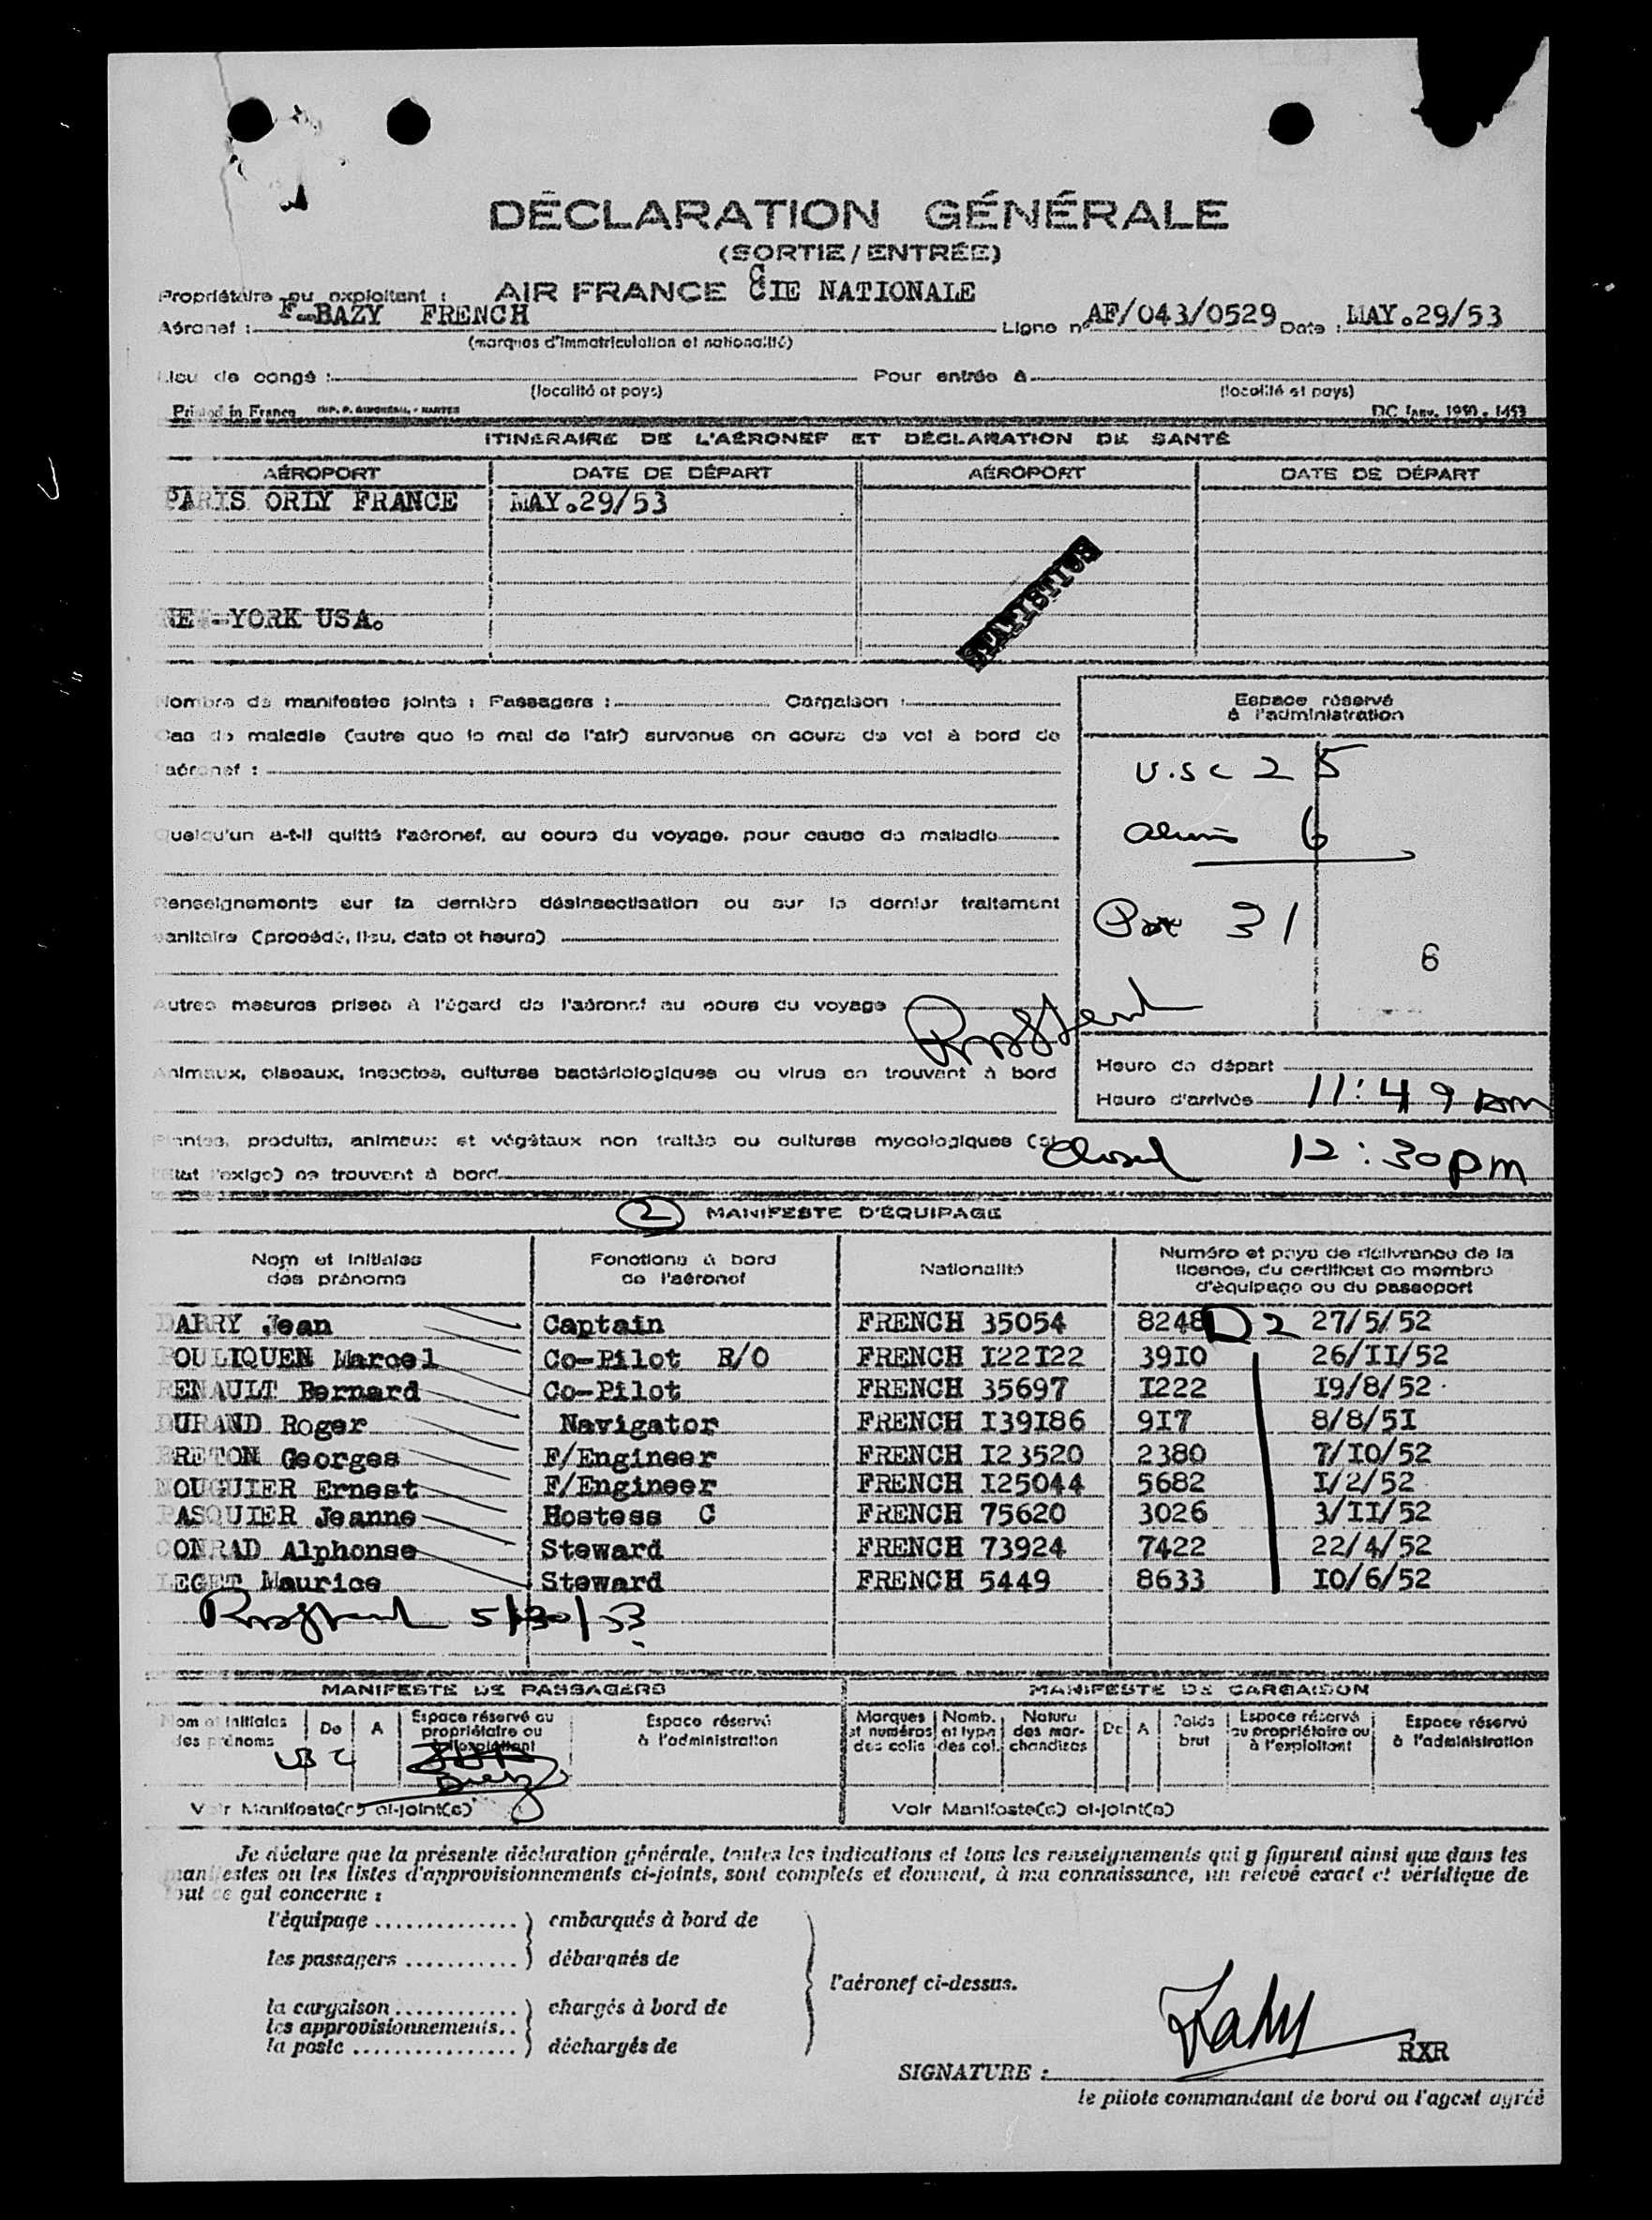 DÉCLARATION GÉNÉRALE
(SORTIE/ENTRÉE)
Propriétaire ou exploitant : AIR FRANCE CIE NATIONALE
Aéronef : F-BAZY FRENCH Ligne n° AF/043/0529 Date : MAY.29/53
(marques d'immatriculation et nationalité)
Lieu de congé : Pour entrée à
(localité et pays) (localité et pays)
Printed in France DC Janv. 1950 - 1453
ITINERAIRE DE L'AÉRONEF ET DÉCLARATION DE SANTÉ
AÉROPORT DATE DE DÉPART AÉROPORT DATE DE DÉPART
PARIS ORLY FRANCE MAY.29/53
STATISTICS
NE -YORK USA.
Nombre de manifestes joints : Passagers : Cargaison :
Espace réservé
à l'administration
Cas de maladie (autre que le mal de l'air) survenus en cours de vol à bord de
l'aéronef :
U.S C 25
Quelqu'un a-t-il quitté l'aéronef, au cours du voyage, pour cause de maladie
6
Renseignements sur la dernière désinsectisation ou sur le dernier traitement
sanitaire (procédé, lieu, date et heure)
31
6
Autres mesures prises à l'égard de l'aéronef au cours du voyage
Animaux, oiseaux, insectes, cultures bactériologiques ou virus en trouvant à bord
Heure de départ
Heure d'arrivée 11:49 am
Plantes, produits, animaux et végétaux non traités ou cultures mycologiques (si
l'état l'exige) se trouvant à bord
Closed 12:30pm
2 MANIFESTE D'ÉQUIPAGE
Nom et initiales des prénoms Fonctions à bord de l'aéronef Nationalité Numéro et pays de délivrance de la licence, du certificat de membre d'équipage ou du passeport
DARRY Jean Captain FRENCH 35054 8248 D2 27/5/52
POULIQUEN Marcel Co-Pilot R/O FRENCH I22I22 39I0 26/II/52
RENAULT Bernard Co-Pilot FRENCH 35697 I222 I9/8/52
DURAND Roger Navigator FRENCH I39I86 9I7 8/8/5I
BRETON Georges F/Engineer FRENCH I23520 2380 7/I0/52
NOUGUIER Ernest F/Engineer FRENCH I25044 5682 I/2/52
PASQUIER Jeanne Hostess C FRENCH 75620 3026 3/II/52
CONRAD Alphonse Steward FRENCH 73924 7422 22/4/52
LEGET Maurice Steward FRENCH 5449 8633 I0/6/52
5/30/53
MANIFESTE DE PASSAGERS MANIFESTE DE CARGAISON
Nom et initiales des prénoms De A Espace réservé au propriétaire ou à l'exploitant Espace réservé à l'administration Marques et numéros des colis Nomb. et type des col. Nature des marchandises De A Poids brut Espace réservé au propriétaire ou à l'exploitant Espace réservé à l'administration
Voir Manifeste(s) ci-joint(s) Voir Manifeste(s) ci-joint(s)
Je déclare que la présente déclaration générale, toutes les indications et tous les renseignements qui y figurent ainsi que dans les
manifestes ou les listes d'approvisionnements ci-joints, sont complets et donnent, à ma connaissance, un relevé exact et véridique de
tout ce qui concerne :
l'équipage .............. ) embarqués à bord de
les passagers ........... ) débarqués de
l'aéronef ci-dessus.
la cargaison ............ ) chargés à bord de
les approvisionnements..
la poste ................ ) déchargés de
RXR
SIGNATURE :
le pilote commandant de bord ou l'agent agréé